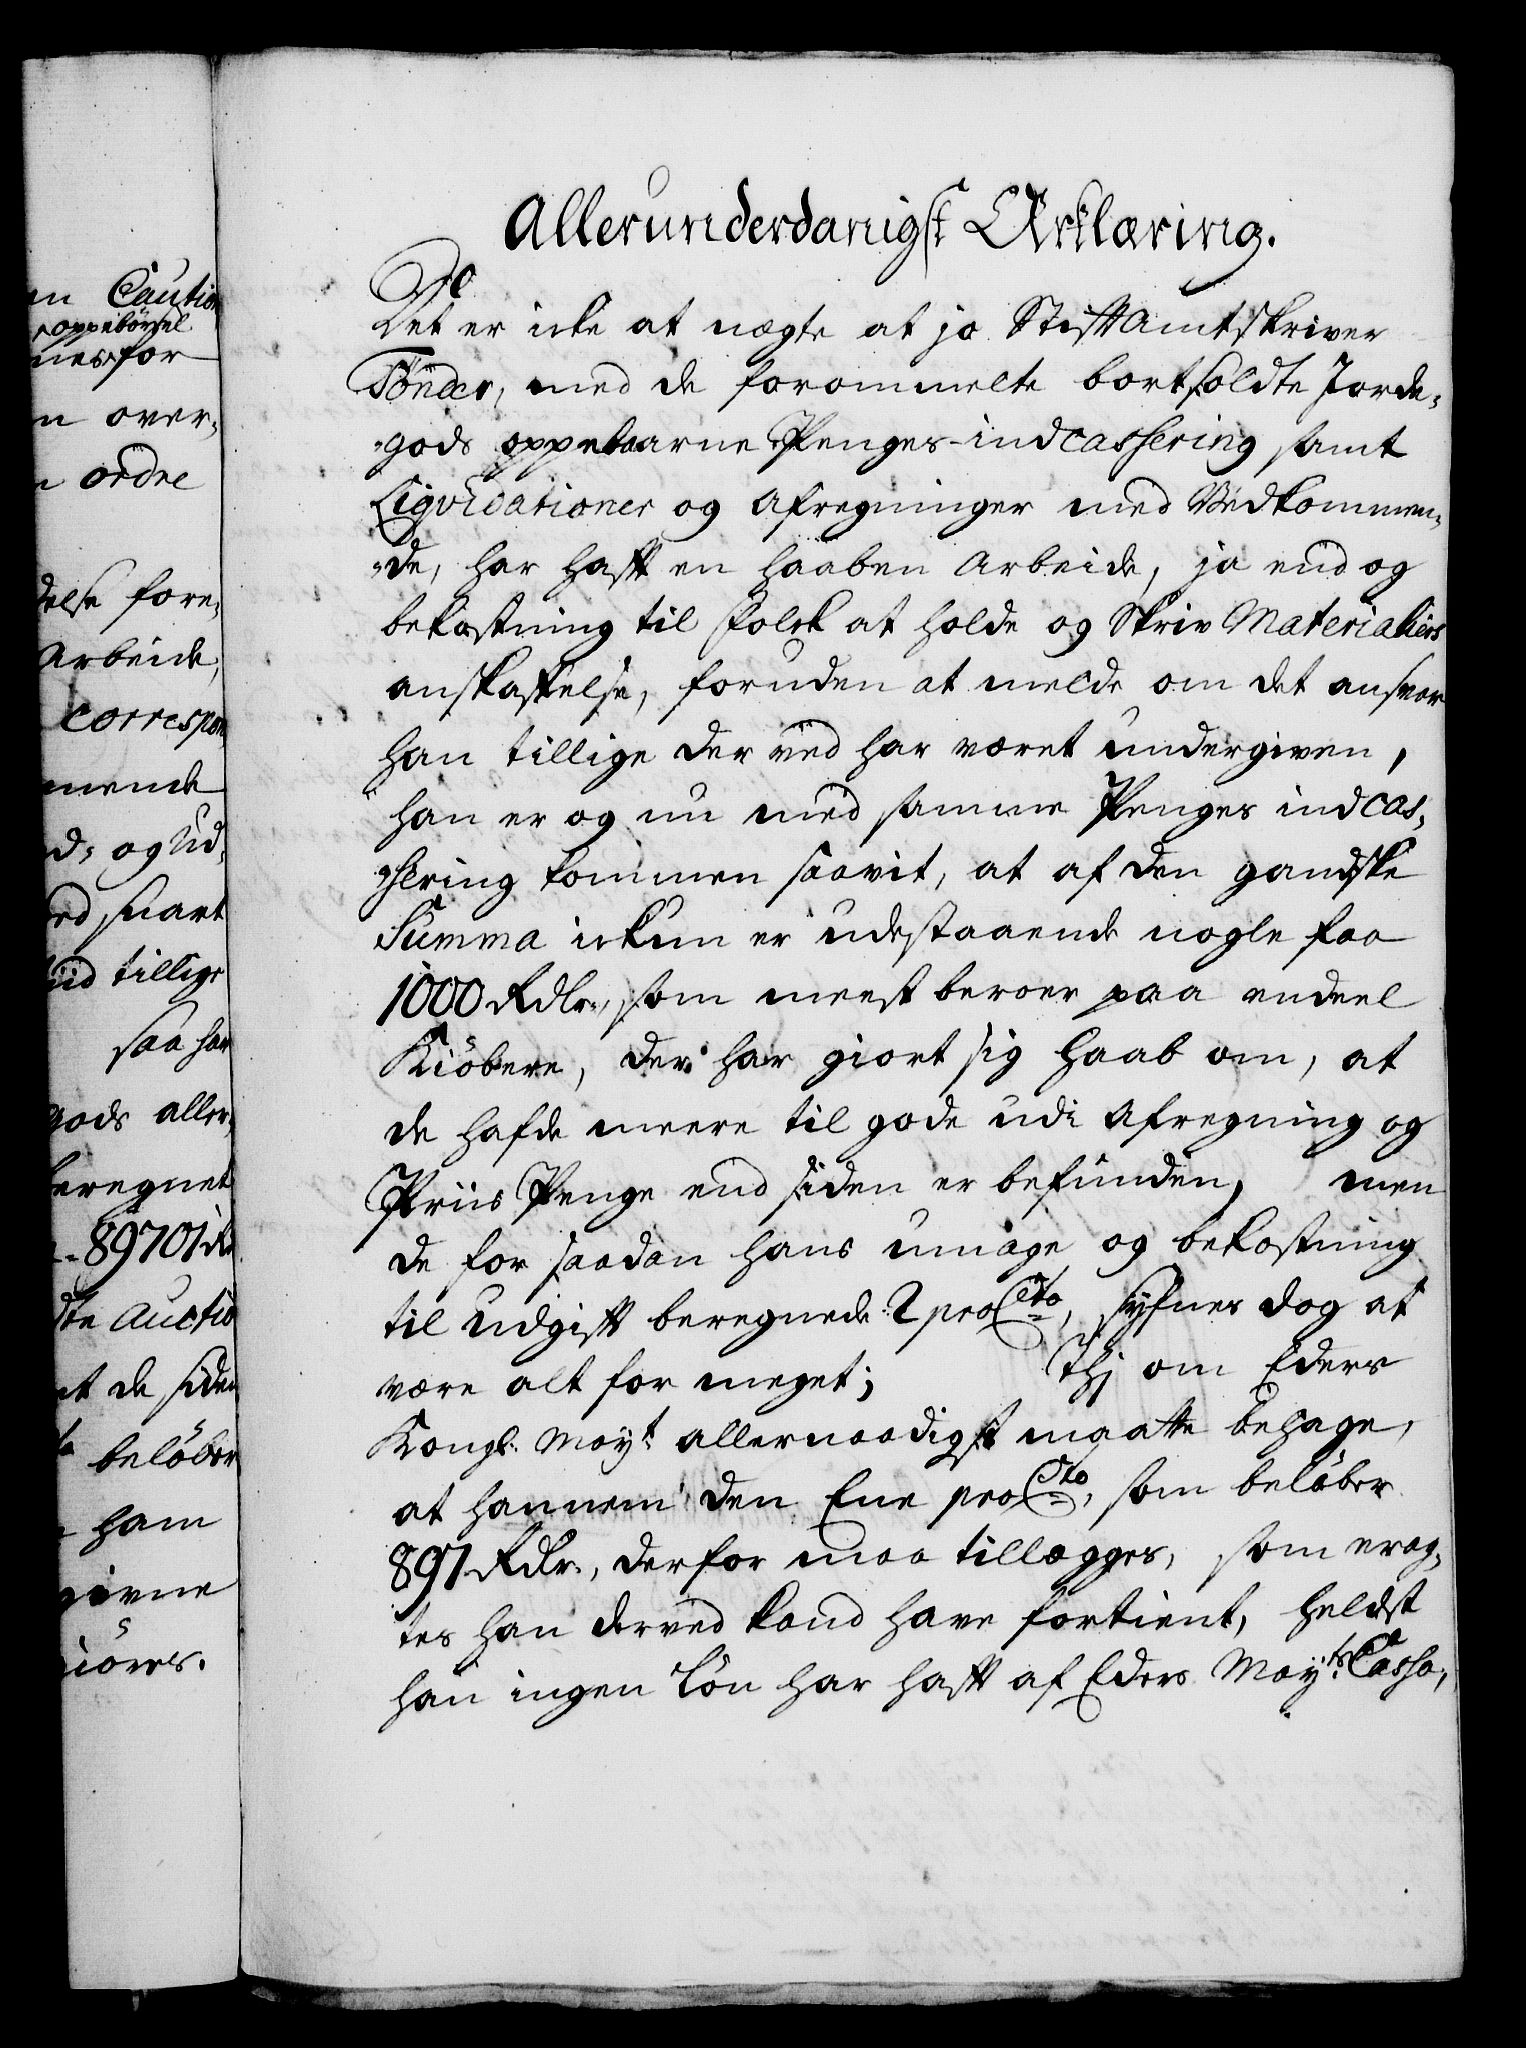 en Caution
oppebörsel
nes for
n over,
n ordre
delse fore,
Arbeide,
correspon
mende
d, og Ud,
ed snart
tiid tillige
saa har
gods aller,
beregnet
89701 Rd
dte Auctio
at de siden
beløber
ham
givne
giöres.
Allerunderdanigst Erklæring.
Det er icke at nægte at jo StiftAmtskriver
Tönder, med de forommelte bortsoldte Jorde,
gods oppebaarne Penges indcassering samt
Liqvidationer og Afregninger med Vedkommen,
de, har hafft en haaben Arbeide, ja end og
bekostning til Folck at holde og Skriv Materialiers
anskaffelse, foruden at melde om det ansvar
han tillige der ved har været undergiven,
han er og nu med samme Penges indcas,
sering kommen saavit, at af den gandske
Summa ickun er udestaaende nogle faa
1000 Rdlr., som meest beroer paa endeel
Kiöbere, der har giort sig haab om, at
de hafde meere til gode udi Afregning og
Priis Penge end siden er befunden, men
de for saadan hans umage og bekostning
til Udgift beregnede 2 pro Cto, siufnes dog at
være alt for meget; Thj om Eders
Kongl. Mayt. allernaadigst maatte behage,
at hannem den Ene pro Cto, som beløber
897 Rdlr., derfor maa tillægges, som erag,
tes han derved kand have fortient, heldst
han ingen Lön har hafft af Eders Mayts. Cassa,